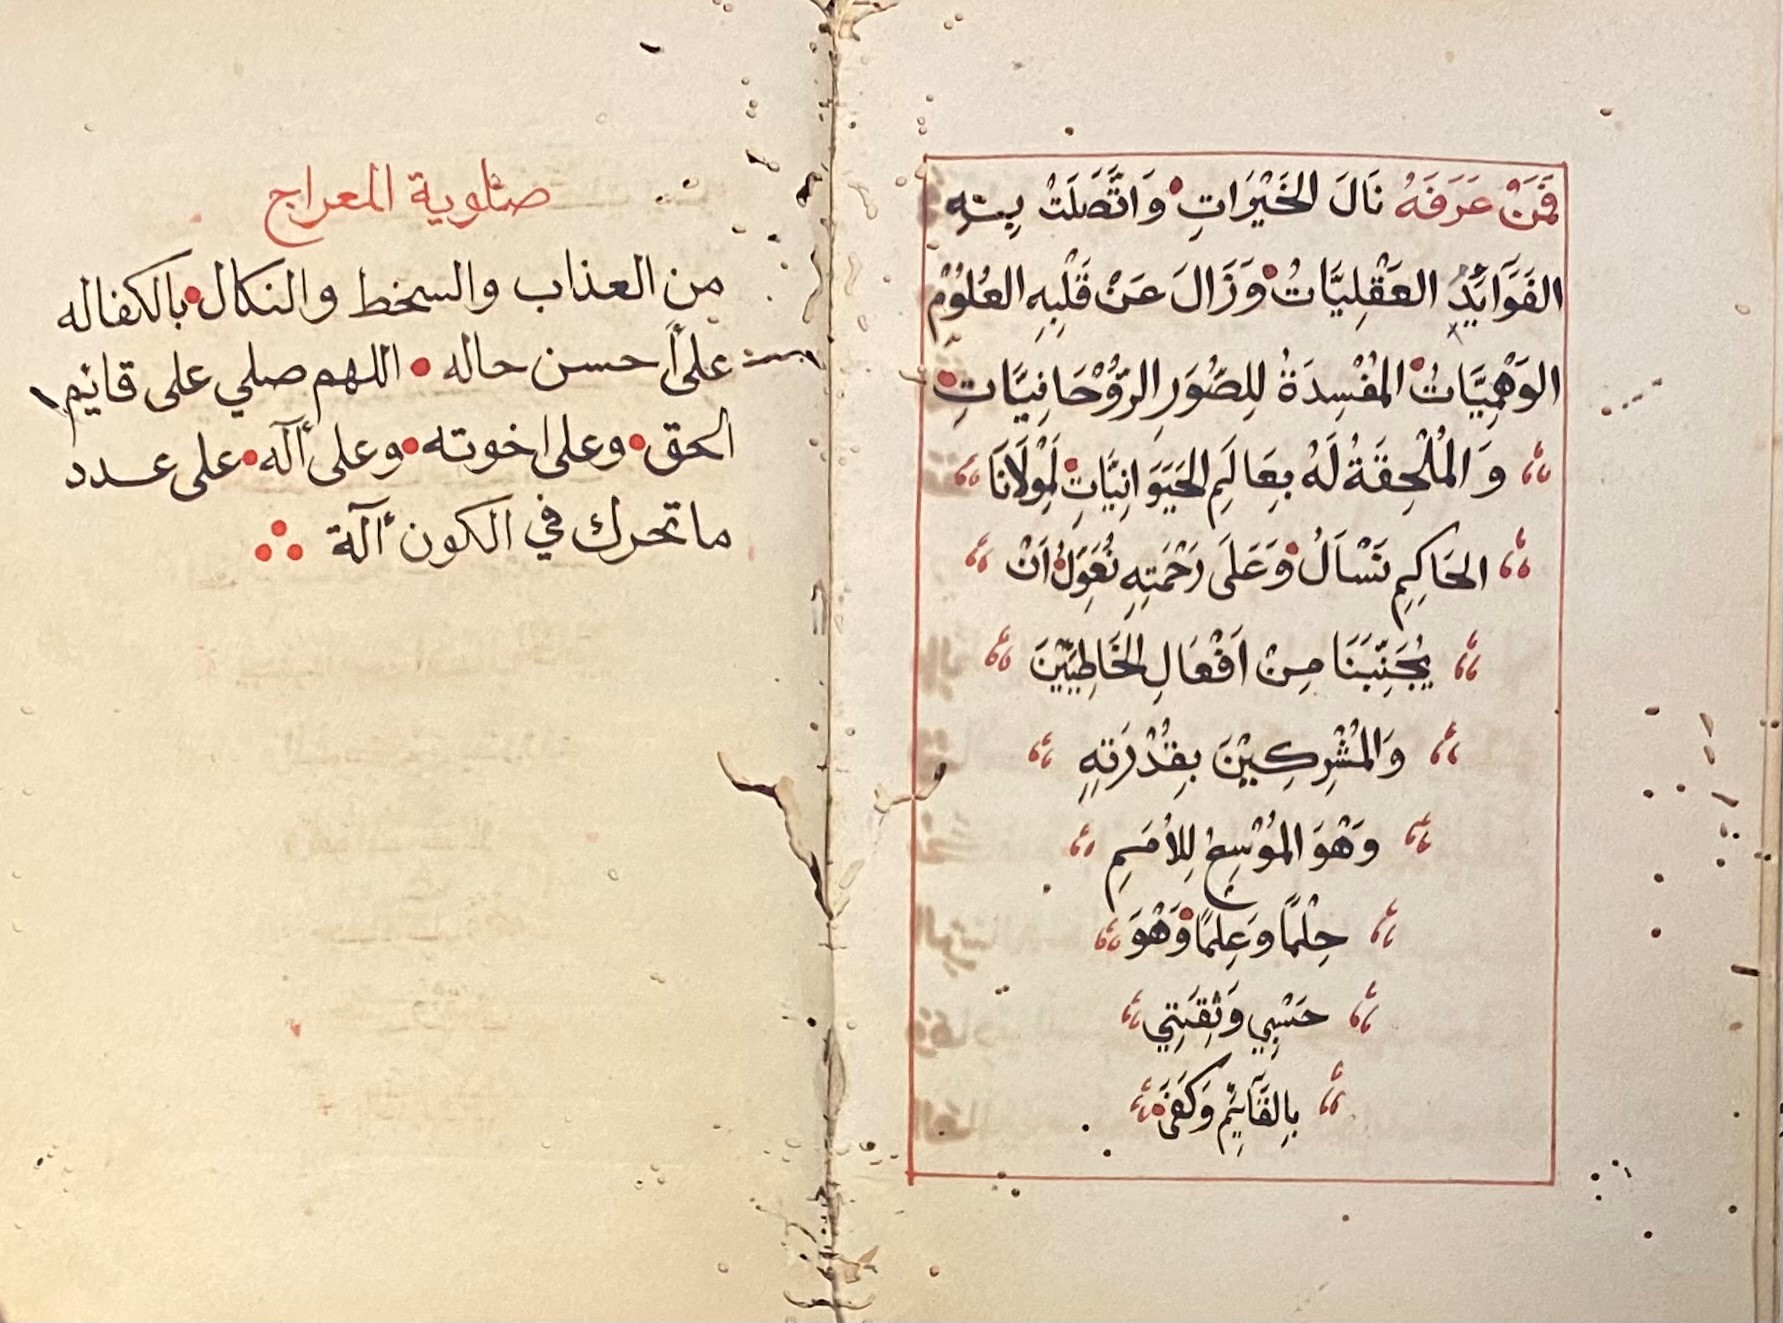 فَمَنْ عَرَفَهُ نَالَ الخَيْرَاتِ وَاتَّصَلَتْ بِهِ
الفَوَآئِدُ العَقْلِيَّاتُ وَزَالَ عَنْ قَلْبِهِ العُلُوْمُ
الوَهْمِيَّاتُ المُفْسِدَةُ لِلصُوَرِ الرُّوْحَانِيَّاتِ
وَالمُلْحِقَةُ لَهُ بِعَالَمِ الحَيَوَانِيَّاتِ لِمَوْلَانَا
الحَاكِمِ نَسْاَلُ وَعَلَى رَحْمَتِهِ نُعَوِلُ اَنْ
يُجَنِّبَنَا مِنْ اَفْعَالِ الخَاطِيِّيْنَ
وَالمُشْرِكِيْنَ بِقُدْرَتِهِ
وَهْوَ المُوْسِعُ لِلاُمَمِ
حِلْمًا وَعِلمًا وَهْوَ
حَسْبِي وَثِقَتِي
بِالقَآئِمِ وَكَفَى
صلوية المعراج
من العذاب والسخط والنكال بالكفاله
على أحسن حاله اللهم صلي على قايم
الحق وعلى اخوته وعلى آله على عدد
ما تحرك في الكون آلة